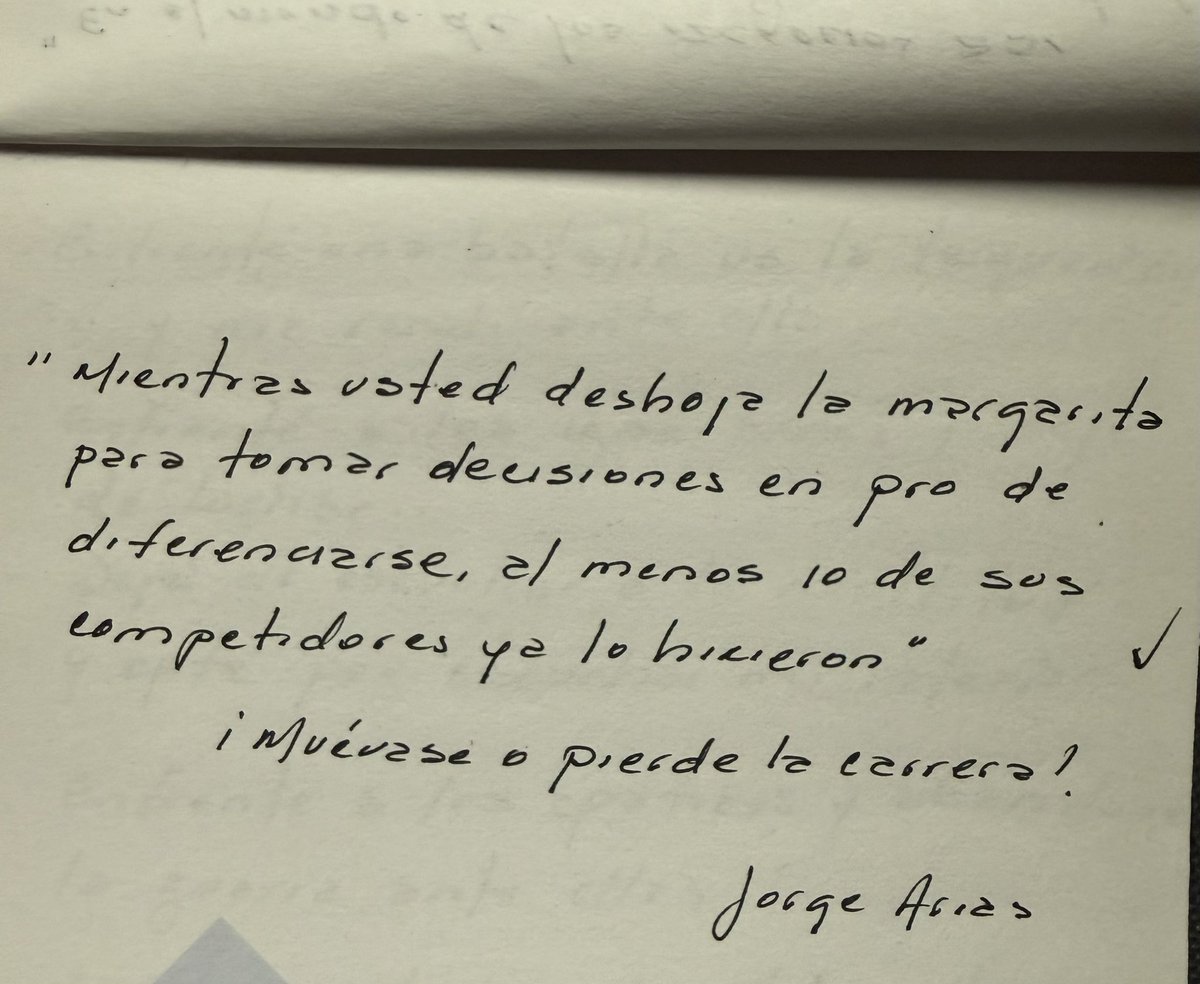 "Mientras usted deshoja la margarita
para tomar decisiones en pro de
diferenciarse, al menos 10 de sus
competidores ya lo hicieron"
¡Muévase o pierde la carrera!
Jorge Arias